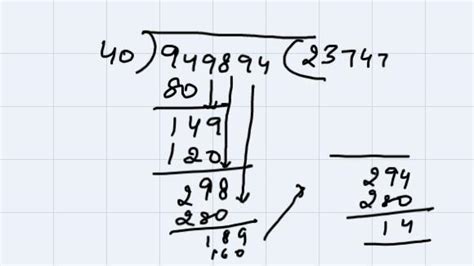 40)949894(23747
80
149
120
298
280
189
160
294
280
14